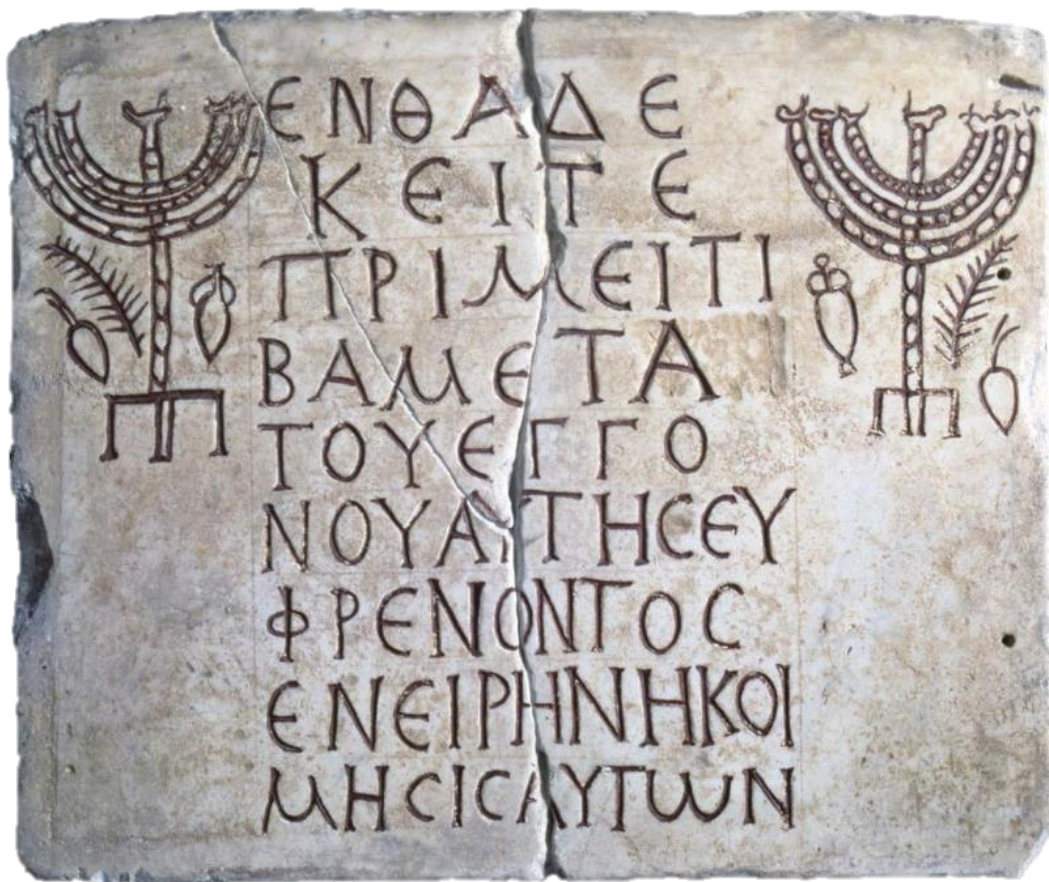 ΕΝΘΑΔΕ
ΚΕΙΤΕ
ΠΡΙΜΕΙΤΙ
ΒΑΜΕΤΑ
ΤΟΥΕΓΓΟ
ΝΟΥΑΥΤΗϹΕΥ
ΦΡΕΝΟΝΤΟϹ
ΕΝΕΙΡΗΝΗΚΟΙ
ΜΗϹΙϹΑΥΤΩΝ